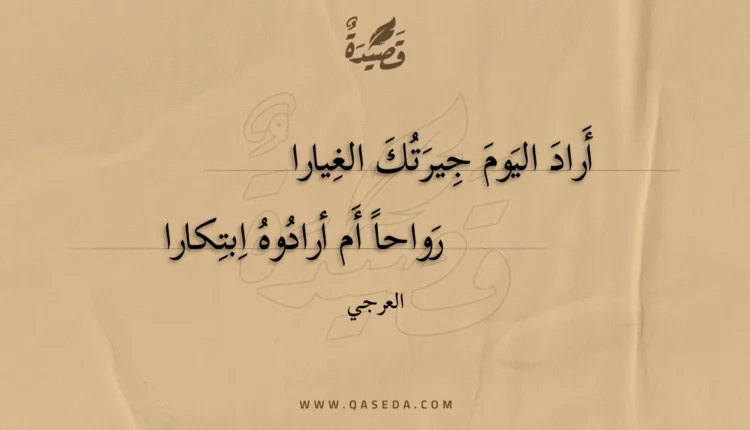 قَصِيدَةٌ
أَرادَ اليَومَ جِيرَتُكَ الغِيارا
رَواحاً أَم أرادُوهُ اِبتِكارا
العرجي
WWW.QASEDA.COM